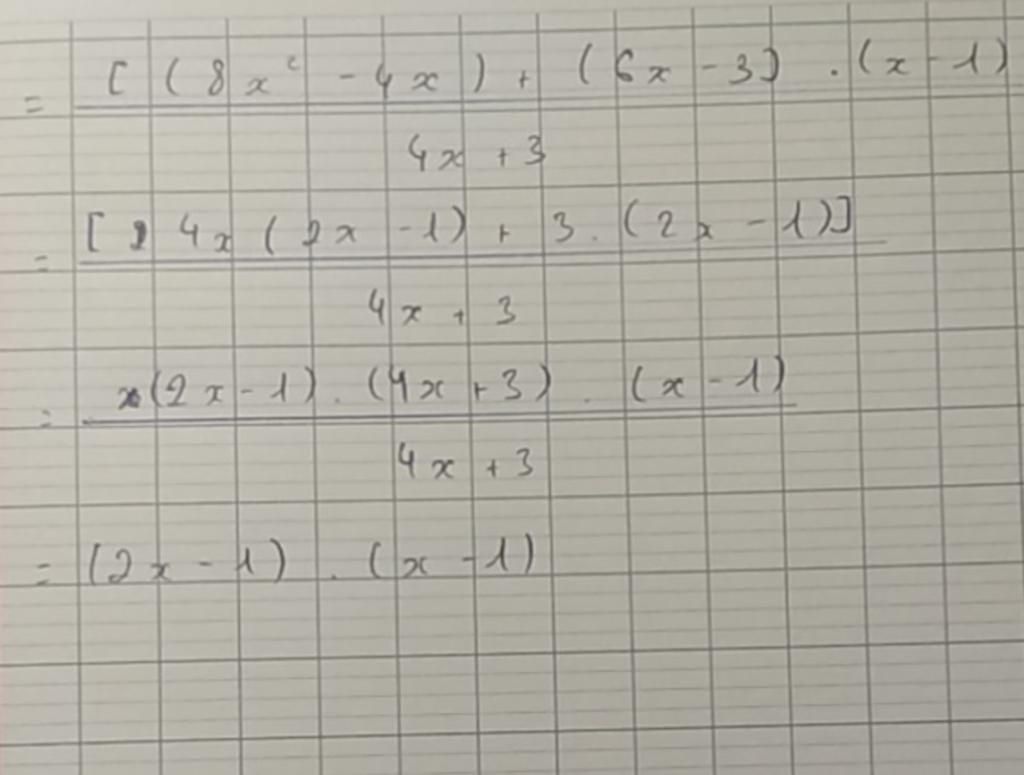 = [ ( 8x² - 4x ) + ( 6x - 3 ] . ( x - 1 )
4x + 3
= [ 4x ( 2x - 1 ) + 3 . ( 2x - 1 ) ]
4x + 3
= (2x - 1) . (4x + 3) . (x - 1)
4x + 3
= (2x - 1) . (x - 1)